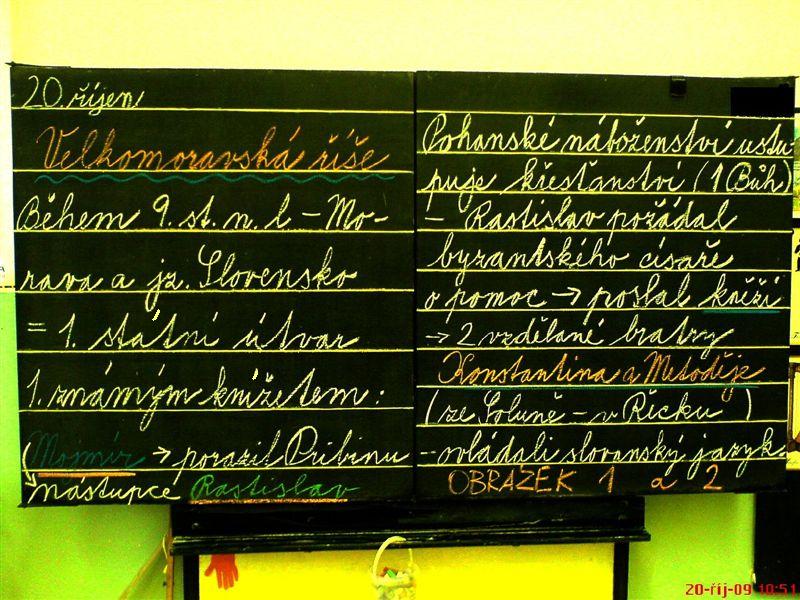 20. říjen
Velkomoravská říše
Během 9. st. n. l. – Mo-
rava a jz. Slovensko
= 1. státní útvar
1. známým knížetem:
Mojmír → porazil Pribinu
nástupce Rastislav
Pohanské náboženství ustu-
puje křesťanství (1 Bůh)
– Rastislav požádal
byzantského císaře
o pomoc → poslal kněží
→ 2 vzdělané bratry
Konstantina a Metoděje
(ze Soluně – v Řecku )
– ovládali slovanský jazyk.
OBRÁZEK 1 a 2
20-říj-09 10:51